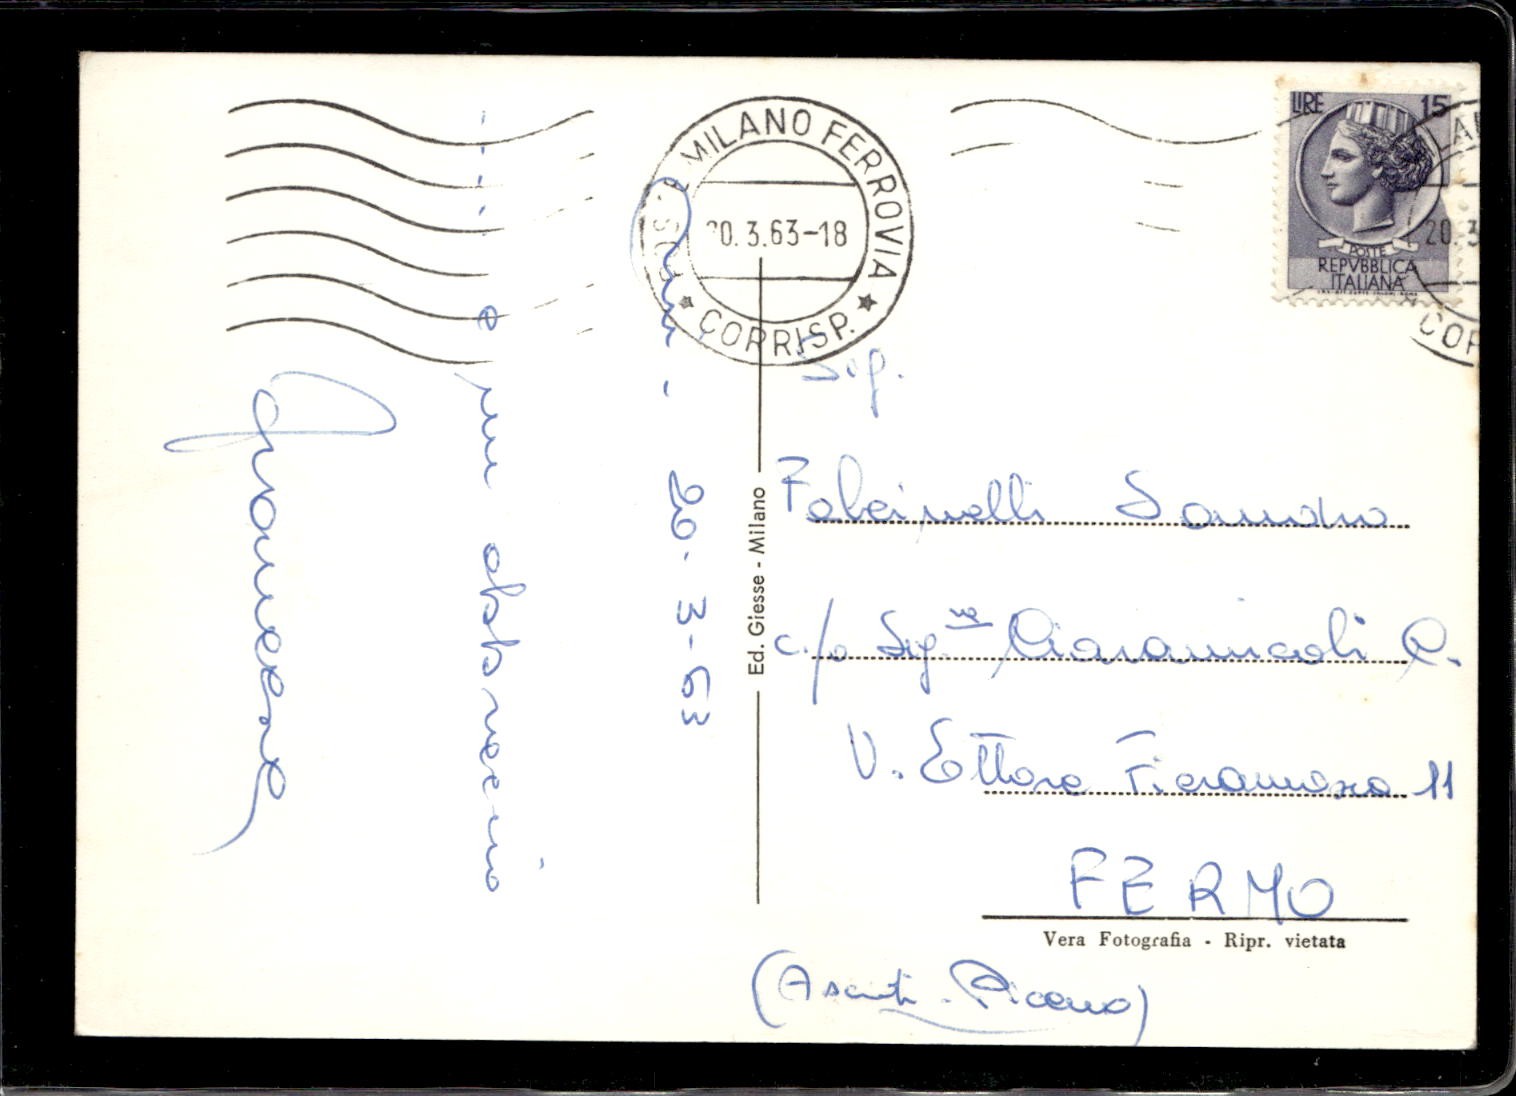 MILANO FERROVIA
20.3.63-18
CORRISP.
LIRE 15
POSTE
REPVBBLICA
ITALIANA
20.3
COR
20-3-63
. . . e un abbraccio
Sig.
Falcinelli Sandro
c/o Sig.na Ciarannicoli C.
V. Ettore Fieramosca 11
FERMO
(Ascoli-Piceno)
Ed. Giesse - Milano
Vera Fotografia - Ripr. vietata